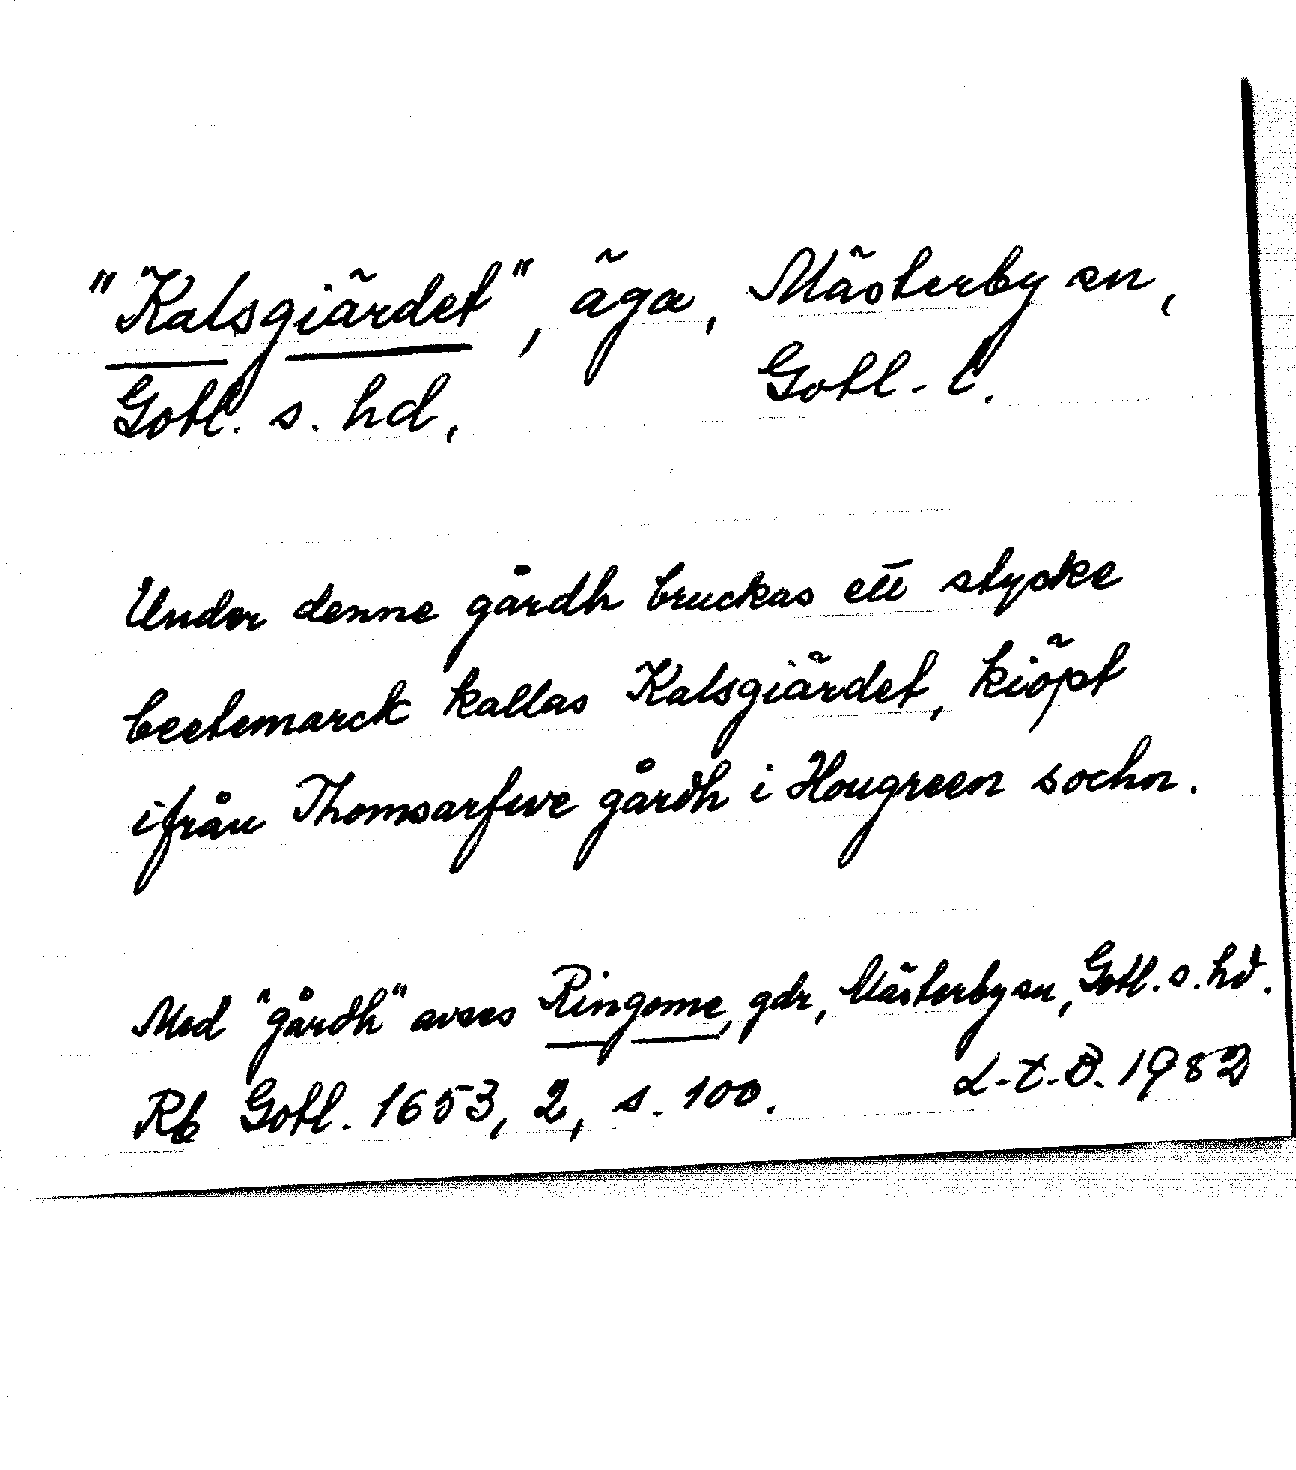 "Kalsgiärdet", äga, Mästerby sn,
Gotl. s. hd, Gotl. l.
Under denne gårdh bruckas ett stycke
beetemarck kallas Kalsgiärdet, kiöpt
ifrån Thomsarfwe gårdh i Hougreen sochn.
Med "gårdh" avses Ringome, gdr, Mästerby sn, Gotl. s. hd.
Rb Gotl. 1653, 2, s. 100. L-t-B. 1982